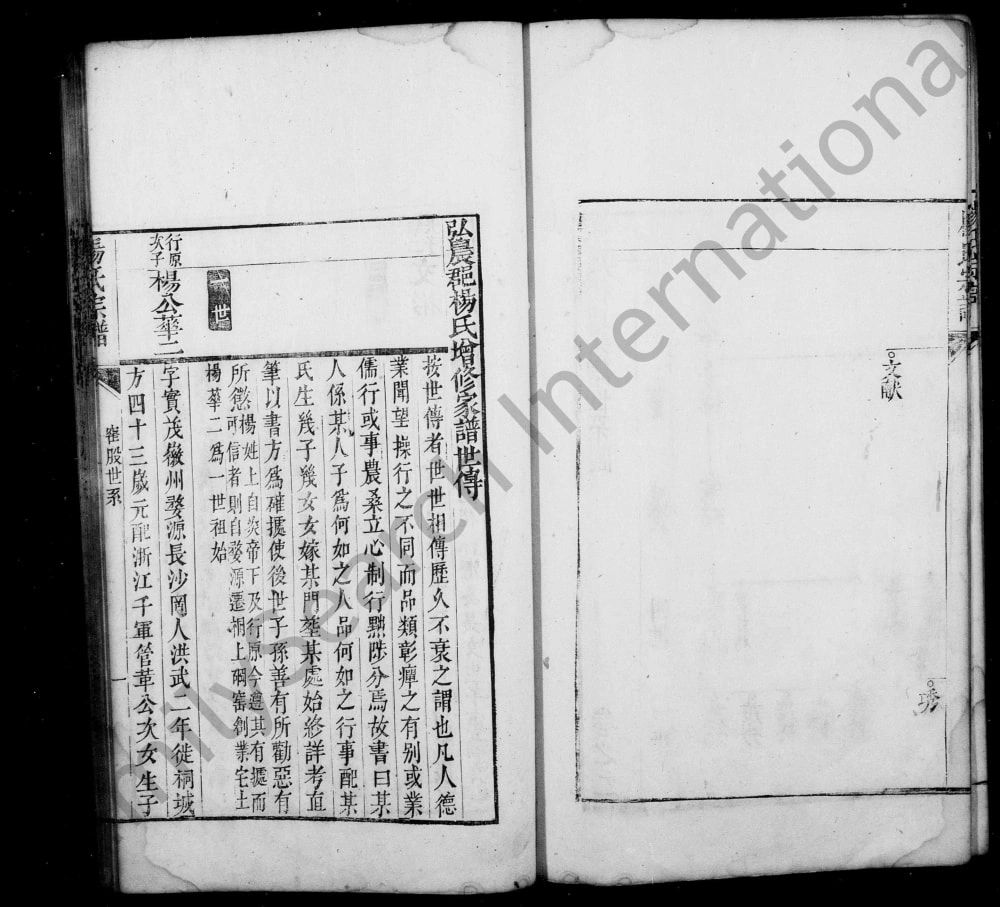 楊氏宗譜
文献
琇
弘農郡楊氏增修家譜世傳
按世傳者世世相傳歷久不衰之謂也凡人德
業聞望操行之不同而品類彰癉之有别或業
儒行或事農桑立心制行黜陟分焉故書曰某
人係某人子爲何如之人品何如之行事配某
氏生幾子幾女女嫁某門塟某處始終詳考直
筆以書方爲確據使後世子孫善有所勸惡有
所懲楊姓上自炎帝下及行原今遵其有據而
可信者則自婺源遷桐上碙窑創業宅土
楊華二爲一世祖始
一世
行原
次子
楊公華二
字實茂徽州婺源長沙岡人洪武二年徙祠城
方四十三歲元配浙江千軍管華公次女生子
楊氏宗譜
窑股世系
一
FamilySearch International